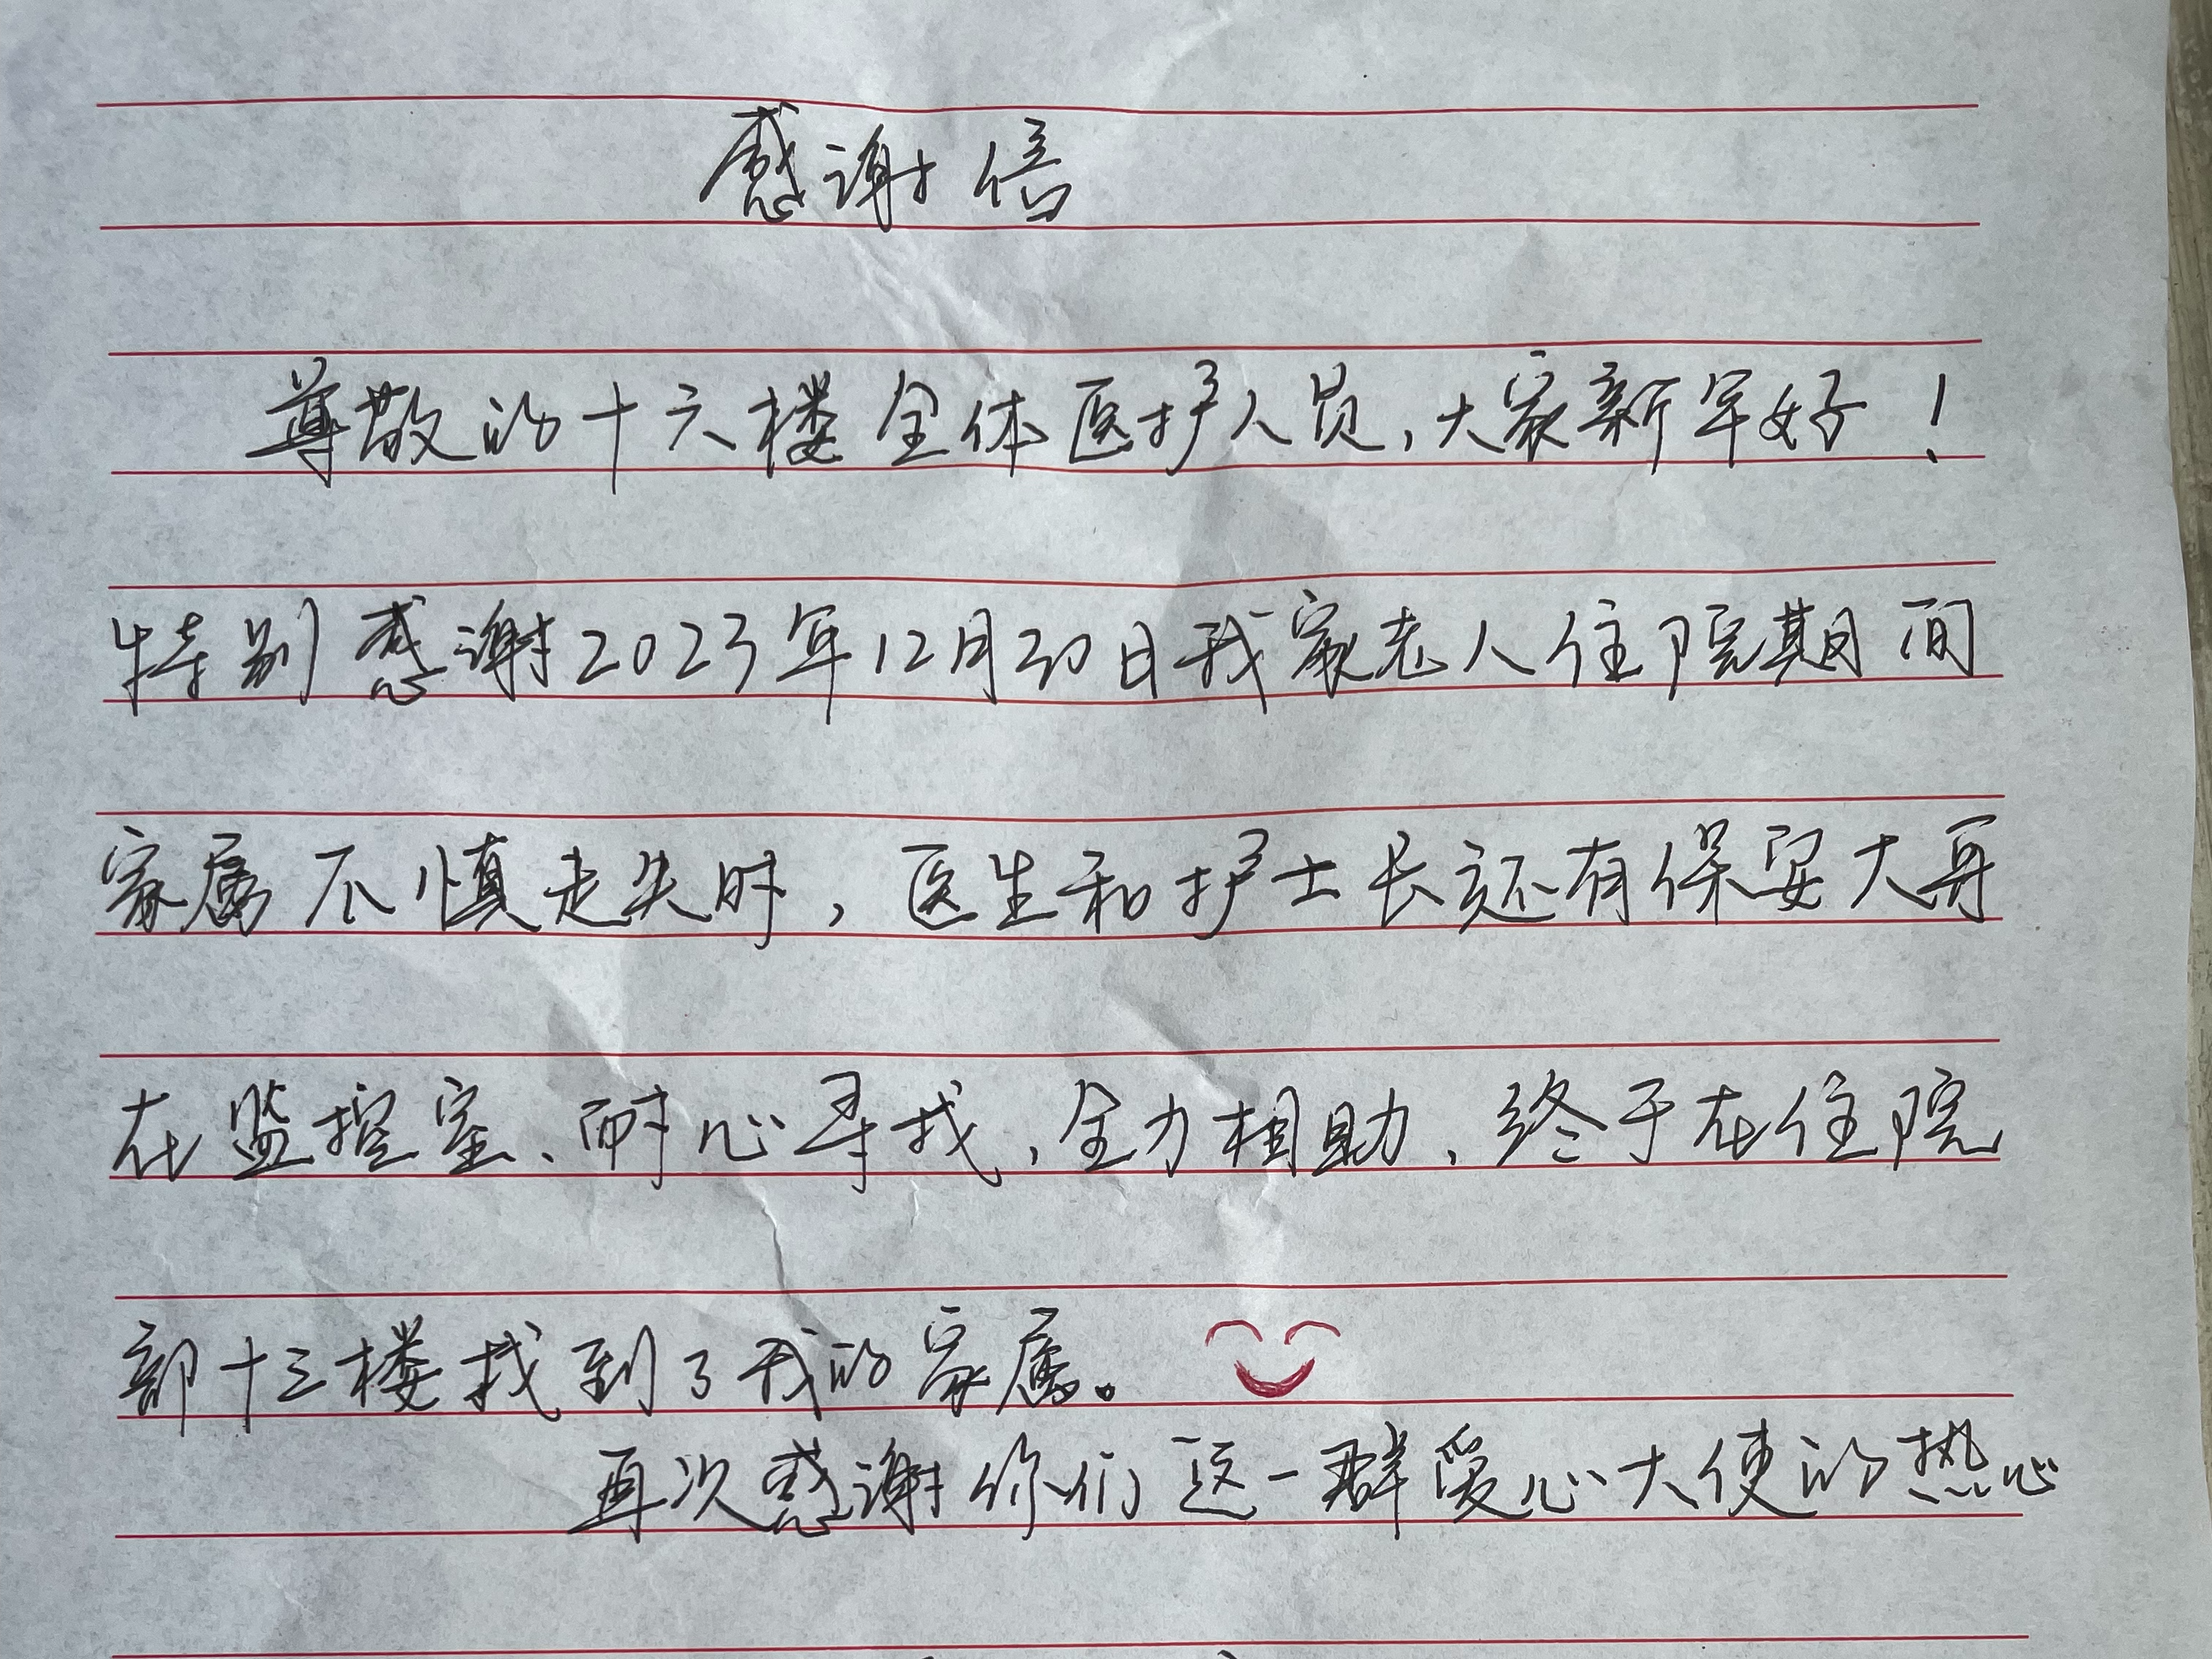 感谢信
尊敬的十六楼全体医护人员，大家新年好！
特别感谢2023年12月30日我家老人住院期间
家属不慎走失时，医生和护士长还有保安大哥
在监控室、耐心寻找，全力相助，终于在住院
部十三楼找到了我的家属。
再次感谢你们这一群爱心大使的热心